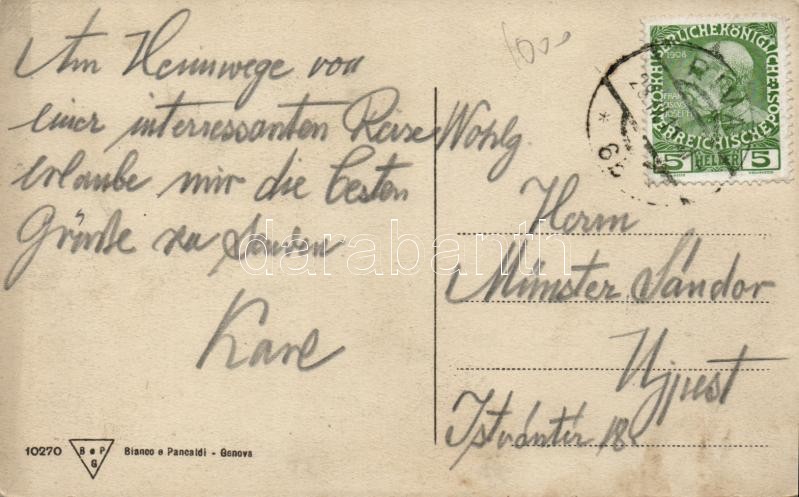 1000
Am Heimwege von
einer interressanten Reise
erlaube mir die besten
Grüße zu senden
Karl
Wohlg
Herrn
Münster Sándor
Ujpest
Istvántér 18
KAISERLICHE KÖNIGLICHE
ÖSTERREICHISCHE
1908
5 HELLER 5
RIVA
10270 B e P G Bianco e Pancaldi - Genova
darabanth